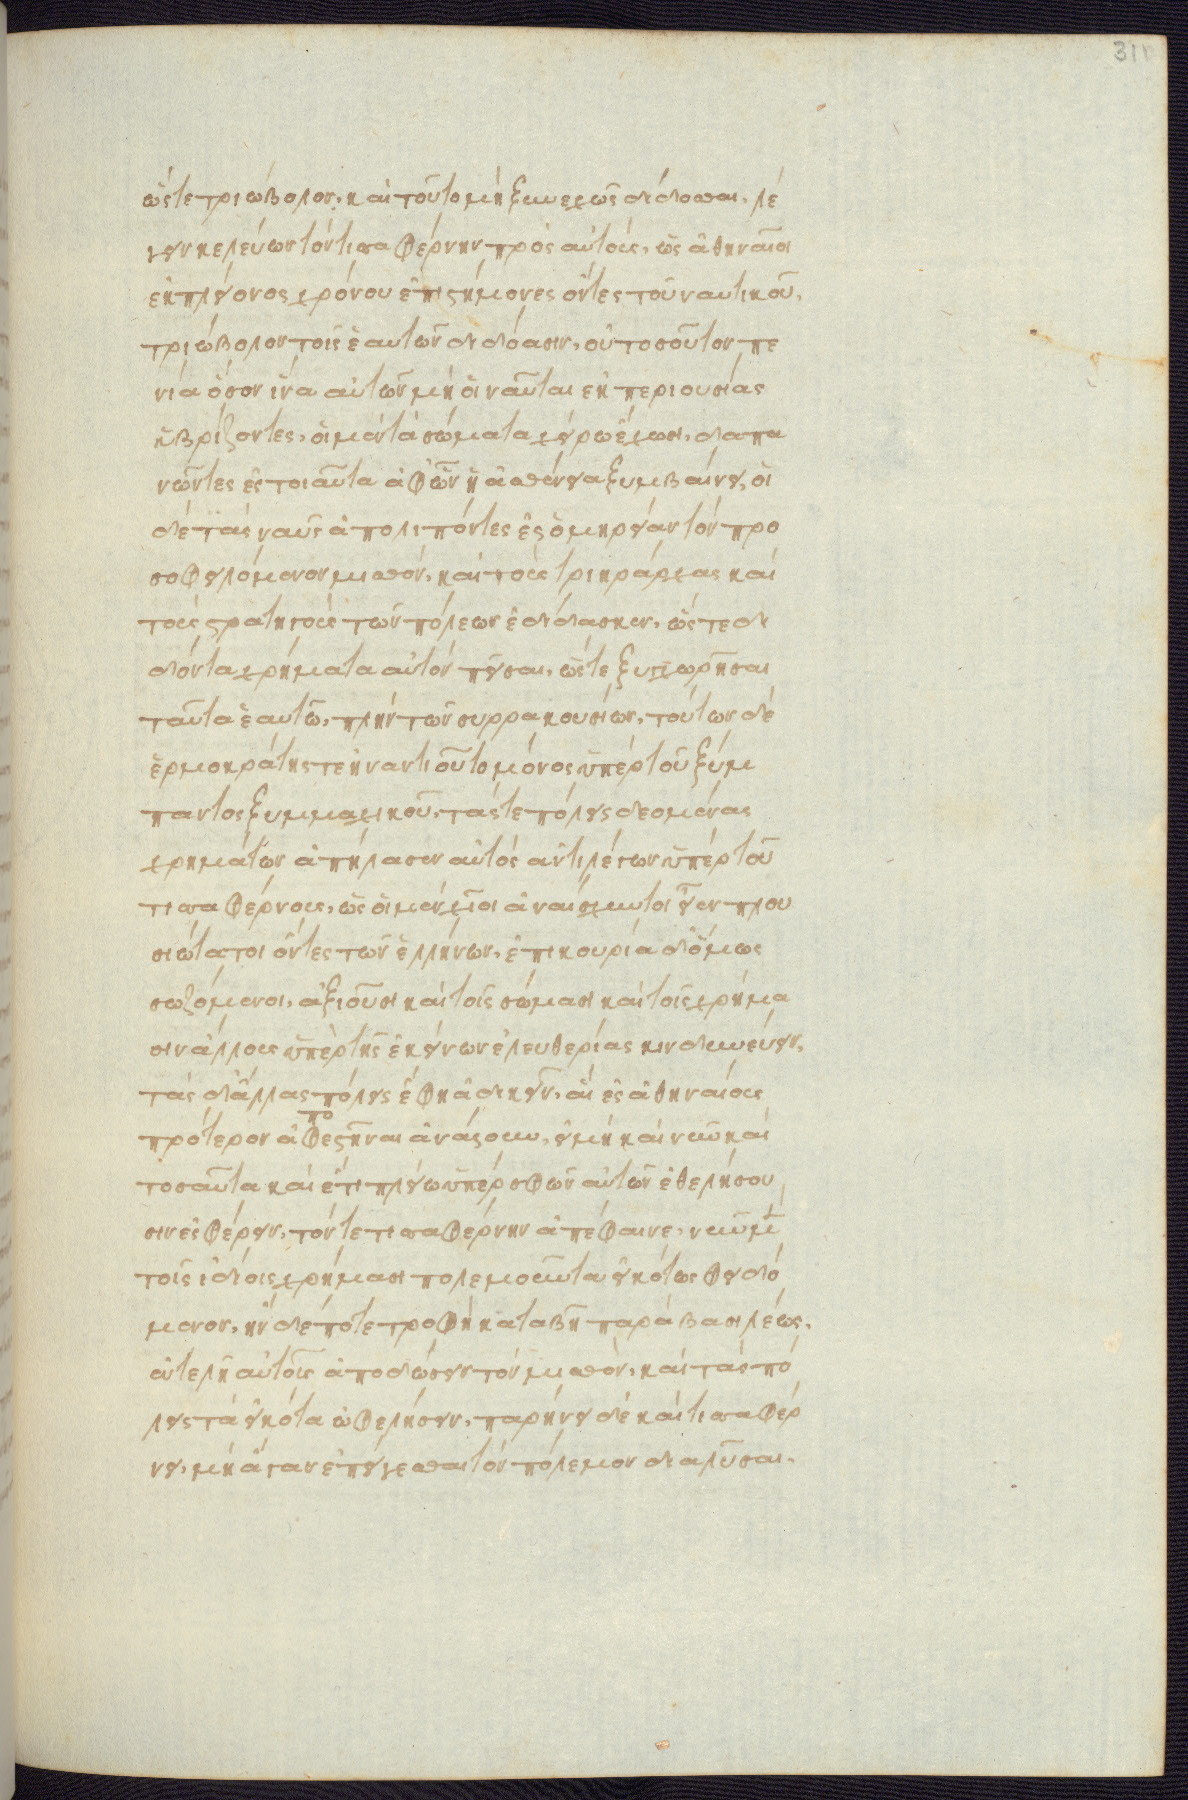 311
ὥστε τριώβολον, καὶ τοῦτο μὴ ξυνεχῶς δίδοσθαι, λέ
γειν κελεύων τὸν τισσαφέρνην πρὸς αὐτοὺς, ὡς ἀθηναῖοι
ἐκ πλείονος χρόνου ἐπιστήμονες ὄντες τοῦ ναυτικοῦ,
τριώβολον τοῖς ἑαυτῶν διδόασιν, οὐ τοσοῦτον πε
νία ὅσον ἵνα αὐτῶν μὴ οἱ ναῦται ἐκ περιουσίας
ὑβρίζοντες, οἱ μὲν τὰ σώματα χείρω ἔχωσι, δαπα
νῶντες ἐς τοιαῦτα ἀφ' ὧν ἡ ἀσθένεια ξυμβαίνει, οἱ
δὲ τὰς ναῦς ἀπολιπόντες ἐς ὁμηρείαν τὸν προ
σοφειλόμενον μισθόν, καὶ τοὺς τριηράρχας καὶ
τοὺς στρατηγοὺς τῶν πόλεων ἐδίδασκεν, ὥστε δι
δόντα χρήματα αὐτὸν πεῖσαι, ὥστε ξυγχωρῆσαι
ταῦτα ἑαυτῶ, πλὴν τῶν συρρακουσίων, τούτων δὲ
ἑρμοκράτης τε ἠναντιοῦτο μόνος ὑπὲρ τοῦ ξύμ
παντος ξυμμαχικοῦ, τάς τε πόλεις δεομένας
χρημάτων ἀπήλασεν αὐτὸς ἀντιλέγων ὑπὲρ τοῦ
τισσαφέρνους, ὡς οἱ μὲν χῖοι ἀναίσχυντοι εἶεν πλου
σιώτατοι ὄντες τῶν ἑλλήνων, ἐπικουρία δ' ὅμως
σωζόμενοι, ἀξιοῦσι καὶ τοῖς σώμασι καὶ τοῖς χρήμα
σιν ἄλλους ὑπὲρ τῆς ἐκείνων ἐλευθερίας κινδυνεύειν,
τὰς δ' ἄλλας πόλεις ἔφη ἀδικεῖν, αἳ ἐς ἀθηναίους
πρότερον ἢ ἀποστῆναι ἀνάλουν, εἰ μὴ καὶ νῦν καὶ
τοσαῦτα καὶ ἔτι πλείω ὑπὲρ σφῶν αὐτῶν ἐθελήσου
σιν ἐσφέρειν, τόν τε τισσαφέρνην ἀπέφαινε, νῦν μὲν
τοῖς ἰδίοις χρήμασι πολεμοῦντα εἰκότως φειδό
μενον, ἢν δέ ποτε τροφὴ καταβῆ παρὰ βασιλέως,
ἐντελῆ αὐτοῖς ἀποδώσειν τὸν μισθὸν, καὶ τὰς πό
λεις τὰ εἰκότα ὠφελήσειν, παρήνει δὲ καὶ τισσαφέρ
νει, μὴ ἄγαν ἐπείγεσθαι τὸν πόλεμον διαλῦσαι,